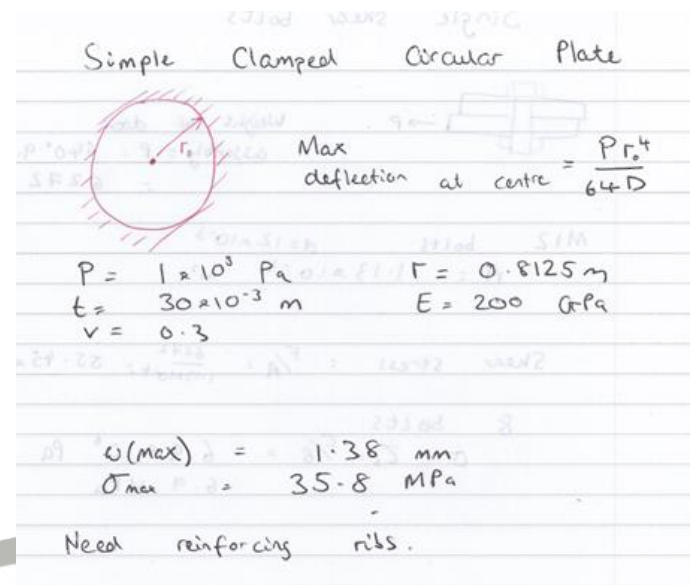 Simple Clamped Circular Plate
r₀
Max
deflection at centre = P r₀⁴ / 64 D
P = 1 x 10⁵ Pa r = 0.8125 m
t = 30 x 10⁻³ m E = 200 GPa
v = 0.3
ω(max) = 1.38 mm
σmax = 35.8 MPa
Need reinforcing ribs.